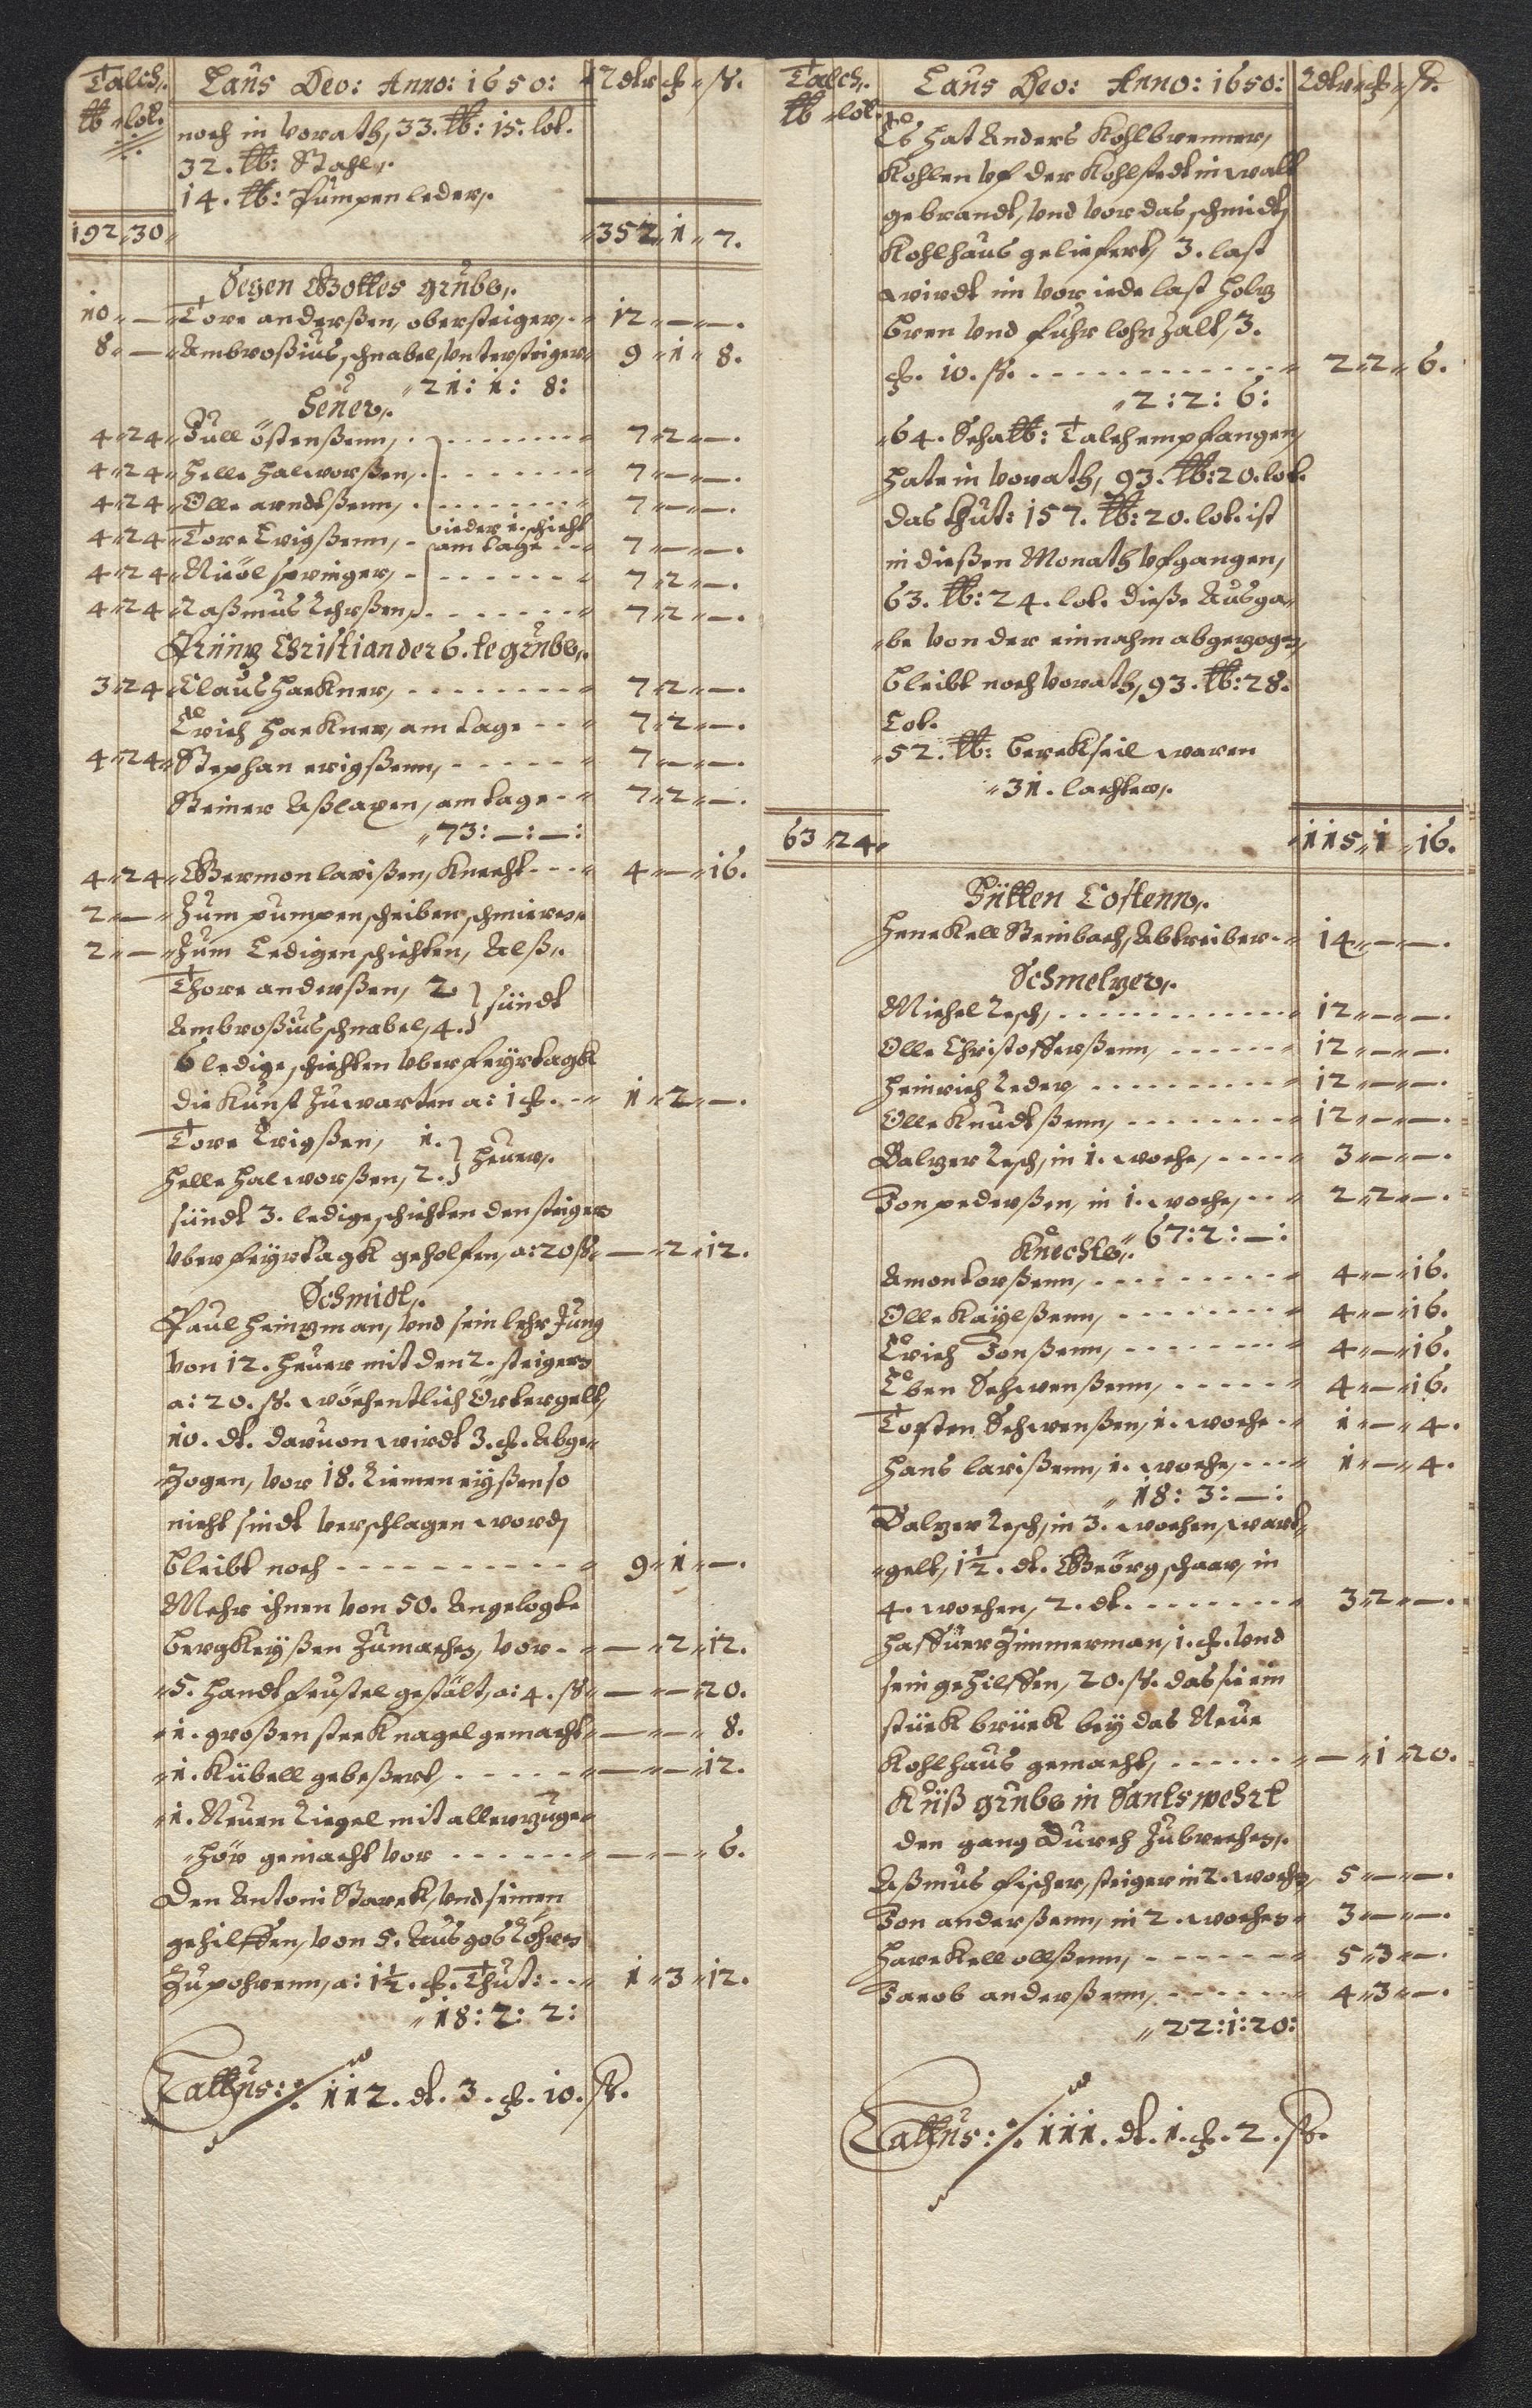 Talch,. Laus Deo: Anno: 1650: Rdtr ф ß.
℔ lot.
noch in vorath, 33. ℔: 15. lot.
32. ℔: Stahl,.
14. ℔: Pumpen leder,.
192 30 352 1 7.
Segen Gottes grube,.
10 — Tore anderßen, obersteiger, 12 — —.
8 — Ambroßius schnabel, Untersteiger 9 1 8.
21: 1: 8:
Heuer,.
4 24 Jull östenßenn, 7 2 —.
4 24 Helle Halvorßen, 7 — —.
4 24 Olle arndtßenn, 7 — —.
4 24 Tore Erigßenn, ieder 1. schicht am tage 7 — —.
4 24 Nicöl springer, 7 2 —.
4 24 Raßmus Lehrßen, 7 2 —.
Prinz Christian der 6. te grube,.
3 24 Claus Hackner, 7 2 —.
Erich Hackner, am tage 7 2 —.
4 24 Stephan erigßenn, 7 — —.
Steiner Aßlaxen, am tage 7 2 —.
73: —: —:
4 24 Germon larißen, Knecht 4 — 16.
2 — Zum pumpen scheiben schmieren
2 — Zum Ledigen schichten, Alß,.
Thore anderßen, 2 } sündt
Ambroßius schnabel, 4.
6 ledige schichten vber feyrtagk
die Kunst Zuwarten a: 1 ф. 1 2 —.
Tore Erigßen, 1. } Heuer,.
Helle Halworßen, 2.
sündt 3. ledige schichten den steigern
vber feyrtagk geholfen, a: 20 ß — 2 12.
Schmidt,.
Paul Heinzman, vnd sein lehr Jung
von 12. Heuer mit den 2. steigern
a: 20. ß. wöchentlich Örtergelt,
10. dt. dauon wirdt 3. ф. Abge
Zogen, vor 18. Riemen eyßen so
nicht sindt verschlagen word,
bleibt noch 9 1 —.
Mehr ihnen von 50. Angelogte
bergkeyßen Zumachen, vor — 2 12.
5. Handtfeustel gestält, a: 4. ß — — 20.
1. großen stecknagel gemacht — — 8.
1. Kübell gebeßert, — — 12.
1. Neuen Riegel mit aller zuge
hör gemacht vor — — 6.
Den Antoni Starck, vnd seinen
gehilffen, von 5. Ausgos Röhren
Zu pohrenn, a: 1½. ф. Thut: 1 3 12.
18: 2: 2:
Lattus: 112. dt. 3. ф. 10. ß.
Talch,. Laus Deo: Anno: 1650: Rdtr ф ß.
℔ lot.
Es hat Anders Kohlbrenner,
Kohlen vf der Kohlstedt in walt
gebrandt, vnd vor das schmidt
Kohlhaus geliefert, 3. last
wirdt im vor iede last Holz
bren vnd fuhrlohn Zalt, 3.
ф. 10. ß. 2 2 6.
2: 2: 6:
64. Scha℔: Talch empfangen,
Hate in vorath, 93. ℔: 20. lot.
das thut: 157. ℔: 20. lot. ist
in dießen Monath vfgangen,
63. ℔: 24. lot. dieße Ausga
be von der einnahm abgezogen,
bleibt noch vorath, 93. ℔: 28.
Lot.
52. ℔: berckseil waren
31. lachter,.
63 24 115 1 16.
Hütten Costenn,.
Henckell Steinbach, Abtreiber 14 — —.
Schmelzer,.
Michel Resch, 12 — —.
Olle Christofferßenn, 12 — —.
Heinrich Reder, 12 — —.
Olle Knudtßenn, 12 — —.
Balzer Resch, in 1. woche, 3 — —.
Jon pederßen, in 1. woche, 2 2 —.
67: 2: —:
Knechte,.
Amon torßenn, 4 — 16.
Olle Kaylßenn, 4 — 16.
Erich Jonßenn, 4 — 16.
Eben Schwenßenn, 4 — 16.
Tosten Schwenßen, 1. woche 1 — 4.
Hans larißenn, 1. woche, 1 — 4.
18: 3: —:
Balzer Resch, in 3. wochen, wart
gelt, 1½. dt. Geörg schaar, in
4. wochen, 2. dt. 3 2 —.
Haffüer Zimmerman, 1. ф. vnd
sein gehilffen, 20. ß. das sie ein
stück brück bey das Neue
Kohlhaus gemacht, — 1 20.
Küß grube in Santswehrt
den gang Durch Zubrechen,.
Aßmus fischer, steiger in 2. wochen 5 — —.
Jon anderßenn, in 2. wochen 3 — —.
Harckell ollßenn, 5 3 —.
Jacob anderßenn, 4 3 —.
22: 1: 20:
Lattus: 111. dt. 1. ф. 2. ß.